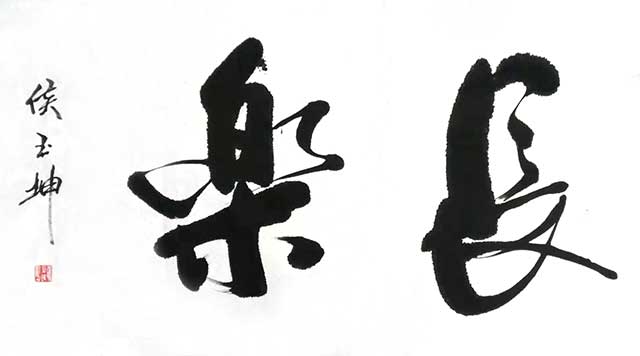 長樂
侯玉坤